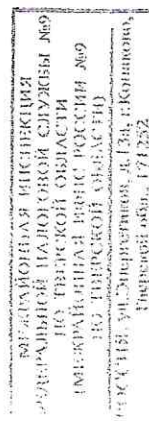 МЕЖРАЙОННАЯ ИНСПЕКЦИЯ
ФЕДЕРАЛЬНОЙ НАЛОГОВОЙ СЛУЖБЫ №9
ПО ТВЕРСКОЙ ОБЛАСТИ
(МЕЖРАЙОННАЯ ИФНС РОССИИ №9
ПО ТВЕРСКОЙ ОБЛАСТИ)
РОССИЯ, ул.Энергетиков, д.13а, г.Конаково,
Тверской обл., 171252